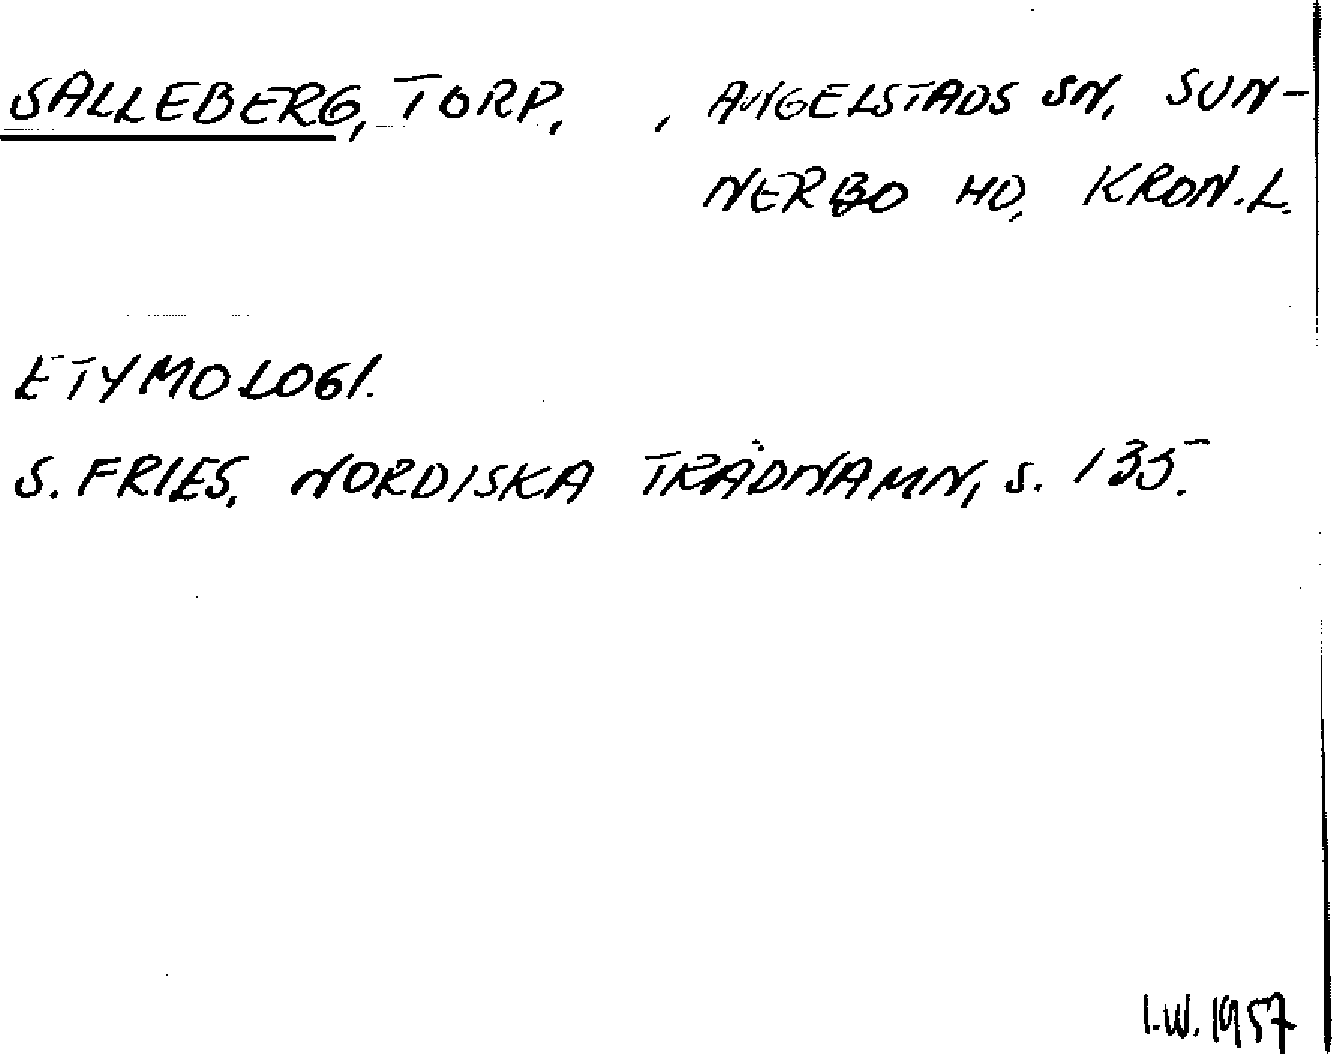 SALLEBERG, TORP. , ANGELSTADS SN, SUN-
NERBO HD, KRON.L.
ETYMOLOGI.
S. FRIES, NORDISKA TRÄDNAMN, s. 135.
I.W. 1957